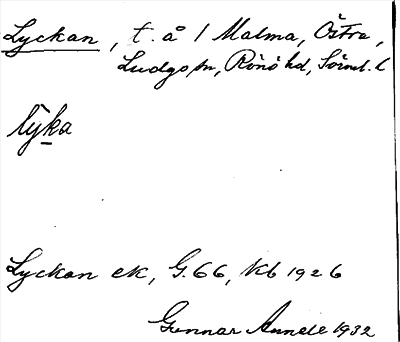 Lyckan, t. å 1 Malma, Östra,
Ludgo sn, Rönö hd, Söml. l
lýka
Lyckan ek, G. 66, Kb 1926
Gunnar Annell 1932